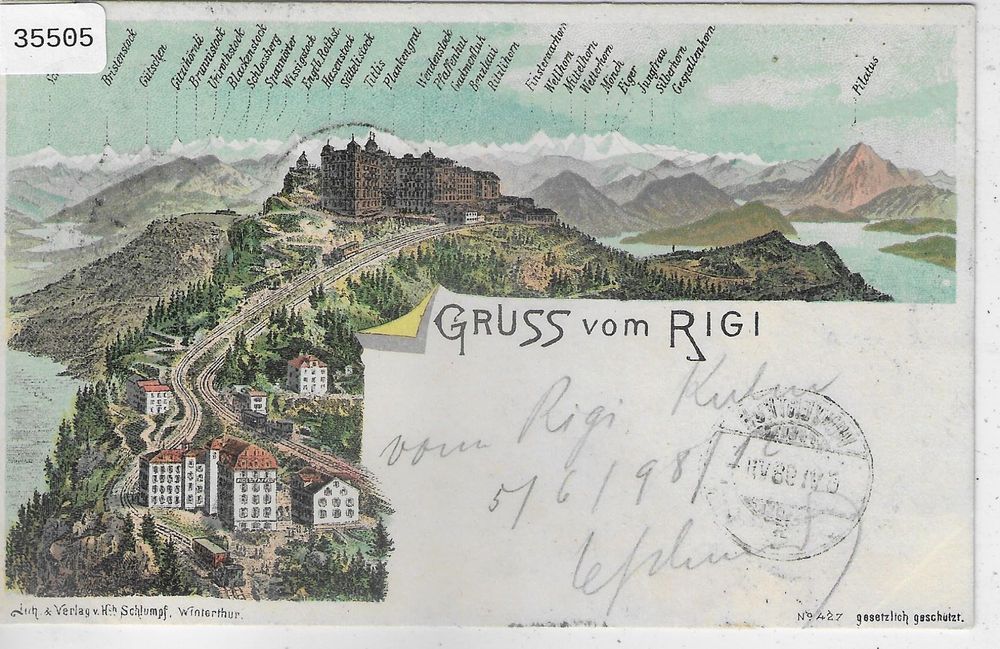 35505
Bristenstock
Gitschen
Gitzihörnli
Brunnistock
Urirothstock
Blackenstock
Schlossberg
Spannörter
Wissigstock
Engelb. Rothst.
Hasenstock
Sättelistock
Titlis
Plankengrat
Wendenstock
Pfaffenhut
Gadmerfluh
Brezlaui
Ritzlihorn
Finsteraarhorn
Wellhorn
Mittelhorn
Wetterhorn
Mönch
Eiger
Jungfrau
Silberhorn
Gespaltenhorn
Pilatus
GRUSS vom RIGI
vom Rigi Kulm
5/6/98/
Lith. & Verlag v. Hch. Schlumpf, Winterthur.
No 427 gesetzlich geschützt.